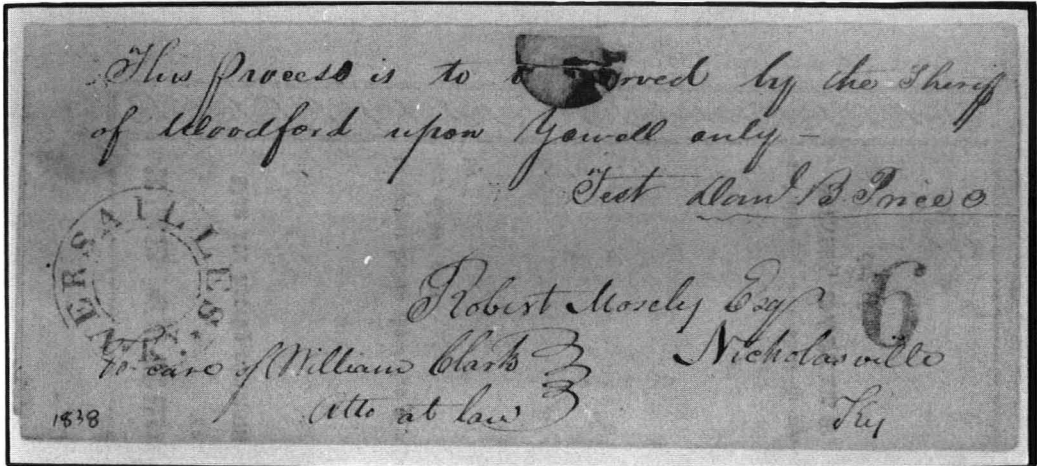 This process is to be served by the Sheriff
of Woodford upon Yowell only –
Test Danl B. Price
VERSAILLES. Ky.
6
Robert Mosely Esqr
Nicholasville
Ky
To care of William Clark
Atto at law
1838